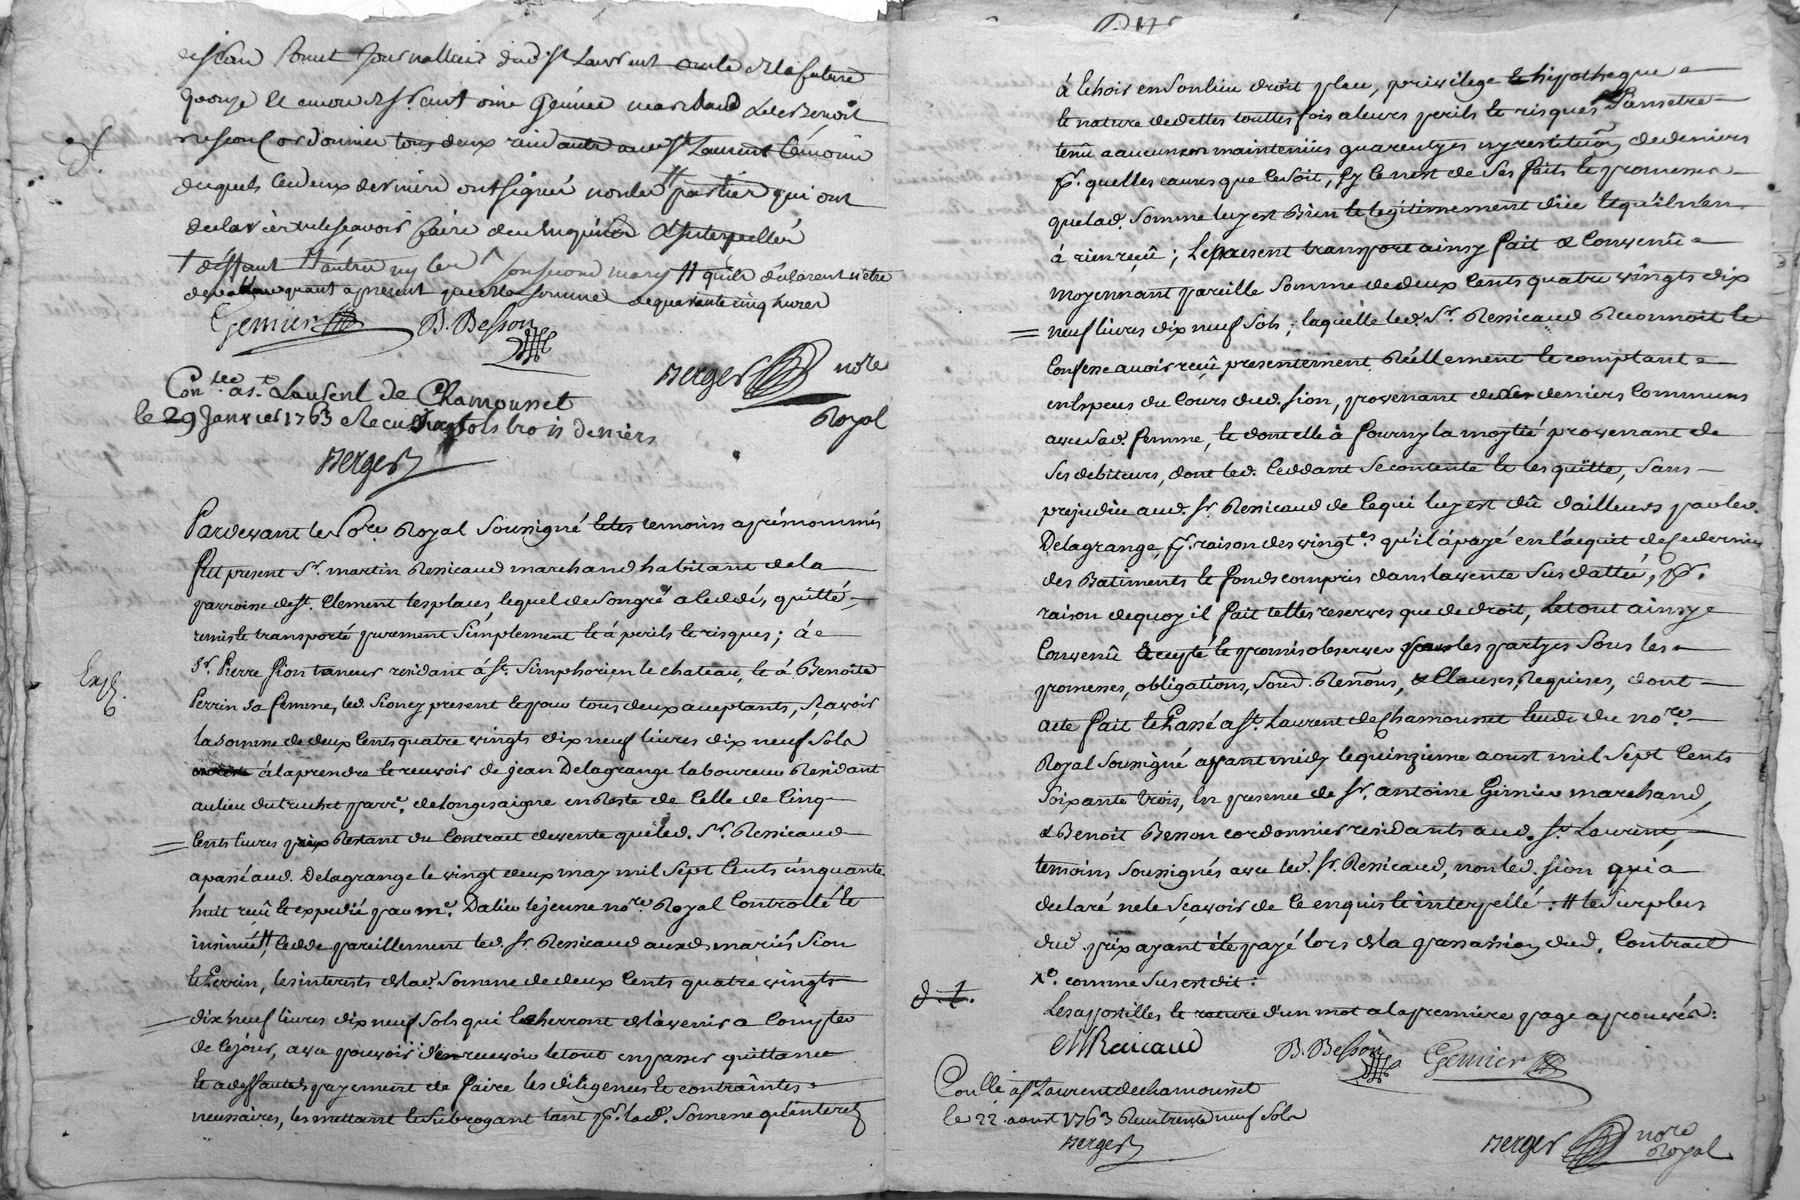 journallier dud. st Laurent oncle de la future
encore de sr antoine Genier marchand et benoit
besson cordonnier tous deux residants aud. st Laurent témoins
desquels les deux derniers ont signés non les parties qui ont
declaré ne le scavoir faire de ce enquises et interpellés
son second mary # qu'ils déclarent n'etre
quant apresent que de la somme de quarante cinq livres
Genier B. Besson
Berger nore
Royal
Con.lée a st. Laurent de Chamousset
le 29 Janvier 1763 Recu sols trois deniers
Berger
Pardevant le Nore Royal Soussigné et les temoins aprés nommés
fut present Sr. martin Ressicaud marchand habitant de la
parroisse de st. Clement les places, lequel de son gré a cedé, quitté,
remis et transporté purement simplement et à perils et risques; à
Sr. Pierre Sion taneur residant à st. Simphorien le chateau, et à Benoite
Perrin sa femme, led. Sion cy present et pour tous deux acceptants, Scavoir
la somme de deux cents quatre vingts dix neuf livres dix neuf sols
à la prendre et recevoir de jean Delagrange laboureur Residant
au lieu du truchet parre. de longesaigne en Reste de celle de Cinq
Cents livres prix Restant du Contract de vente que led. Sr. Ressicaud
a passé aud. Delagrange le vingt deux may mil sept cents cinquante
huit reçû et expedié par me. Dalin le jeune nore Royal Controllé et
insinué #, cedde pareillement led. sr. Ressicaud auxd. mariés Sion
et Perrin, les interests de lad. Somme de deux Cents quatre vingts
dix neuf livres dix neuf Sols qui echerront à l'avenir a Compter
de ce jour, avec pouvoir d'en recevoir le tout en passer quittance
et a deffaut de payement de faire les diligences et contraintes
necessaires, les mettant et subrogant tant pr. lad. Somme qu'interest
Exp.
à le hoir en Son lieu droit place, privilege et hipotheque
et nature de dettes touttes fois a leurs perils et risques Sans etre
tenû a aucunes maintenües guarentyes ny restitution de deniers
pr. quelles causes que ce soit, sy ce n'est de Ses faits et promesses
que lad. Somme luy est bien et legitimement düe et qu'il n'en
à rien reçû; Le present transport ainsy fait et Convenû
moyennant pareille Somme de deux Cents quatre vingts dix
neuf livres dix neuf Sols, laquelle led. Sr. Ressicaud Reconnoit et
Confesse avoir reçû presentement Réellement et comptant
en Especes du Cours dud. Sion, provenant de deniers Communs
avec Sad. femme, et dont elle à fourny la moytié provenant de
Ses debiteurs, dont led. Ceddant se contente et les quitte, Sans
prejudice aud. Sr. Ressicaud de ce qui luy est dû d'ailleurs par led.
Delagrange, pr. raison des vingt.es qu'il à payé en l'acquit de ce dernier
des Batiments et fonds compris dans la vente Sus dattée, pr.
raison de quoy il fait telles reserves que de droit, Le tout ainsy
Convenû accepté et promis observer par les partyes Sous les
promesses, obligations, Soud. Renons, et Clauses Requises, dont
acte fait et Passé a st. Laurent de Chamousset Etude du nore.
Royal Soussigné avant midy le quinzieme aoust mil Sept Cents
Soixante trois, En presence de Sr. antoine Genier marchand,
et Benoit Besson cordonnier residants aud. St. Laurent,
temoins Soussignés avec led. Sr. Ressicaud, non led. Sion qui à
declaré ne le Sçavoir de ce enquis et interpellé. # et le Surplus
dud. prix ayant été payé lors de la passation dud. Contract
comme Sus est dit.
Les apostilles et rature d'un mot a la premiere page aprouvés:
B. Besson Genier
Con.llé a st Laurent de chamousset
le 22 aoust 1763 Recu trente neuf Sols
Berger
Berger nore
Royal